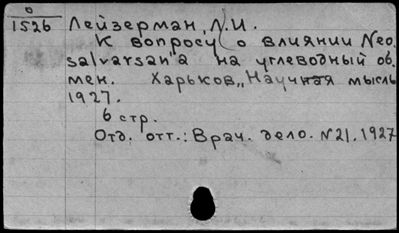 0
1526 Лейзерман, Л.И.
К вопросу о влиянии Neo.
salvarsan'a на углеводный об.
мен. Харьков, „Научная мысль
1927.
6 стр.
Отд. отт.: Врач. дело. №21. 1927